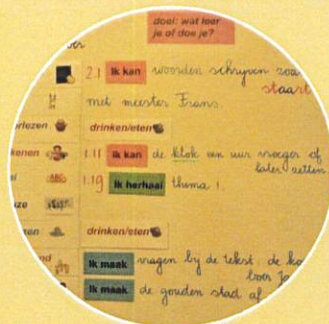 doel: wat leer
je of doe je?
2.1 Ik kan woorden schrijven zoa
staart
met meester Frans.
orlezen drinken/eten
kenen 1.11 Ik kan de klok een uur vroeger of
later zetten
1.19 Ik herhaal thema 1.
drinken/eten
Ik maak vragen bij de tekst: de ko
Ik maak de gouden stad af